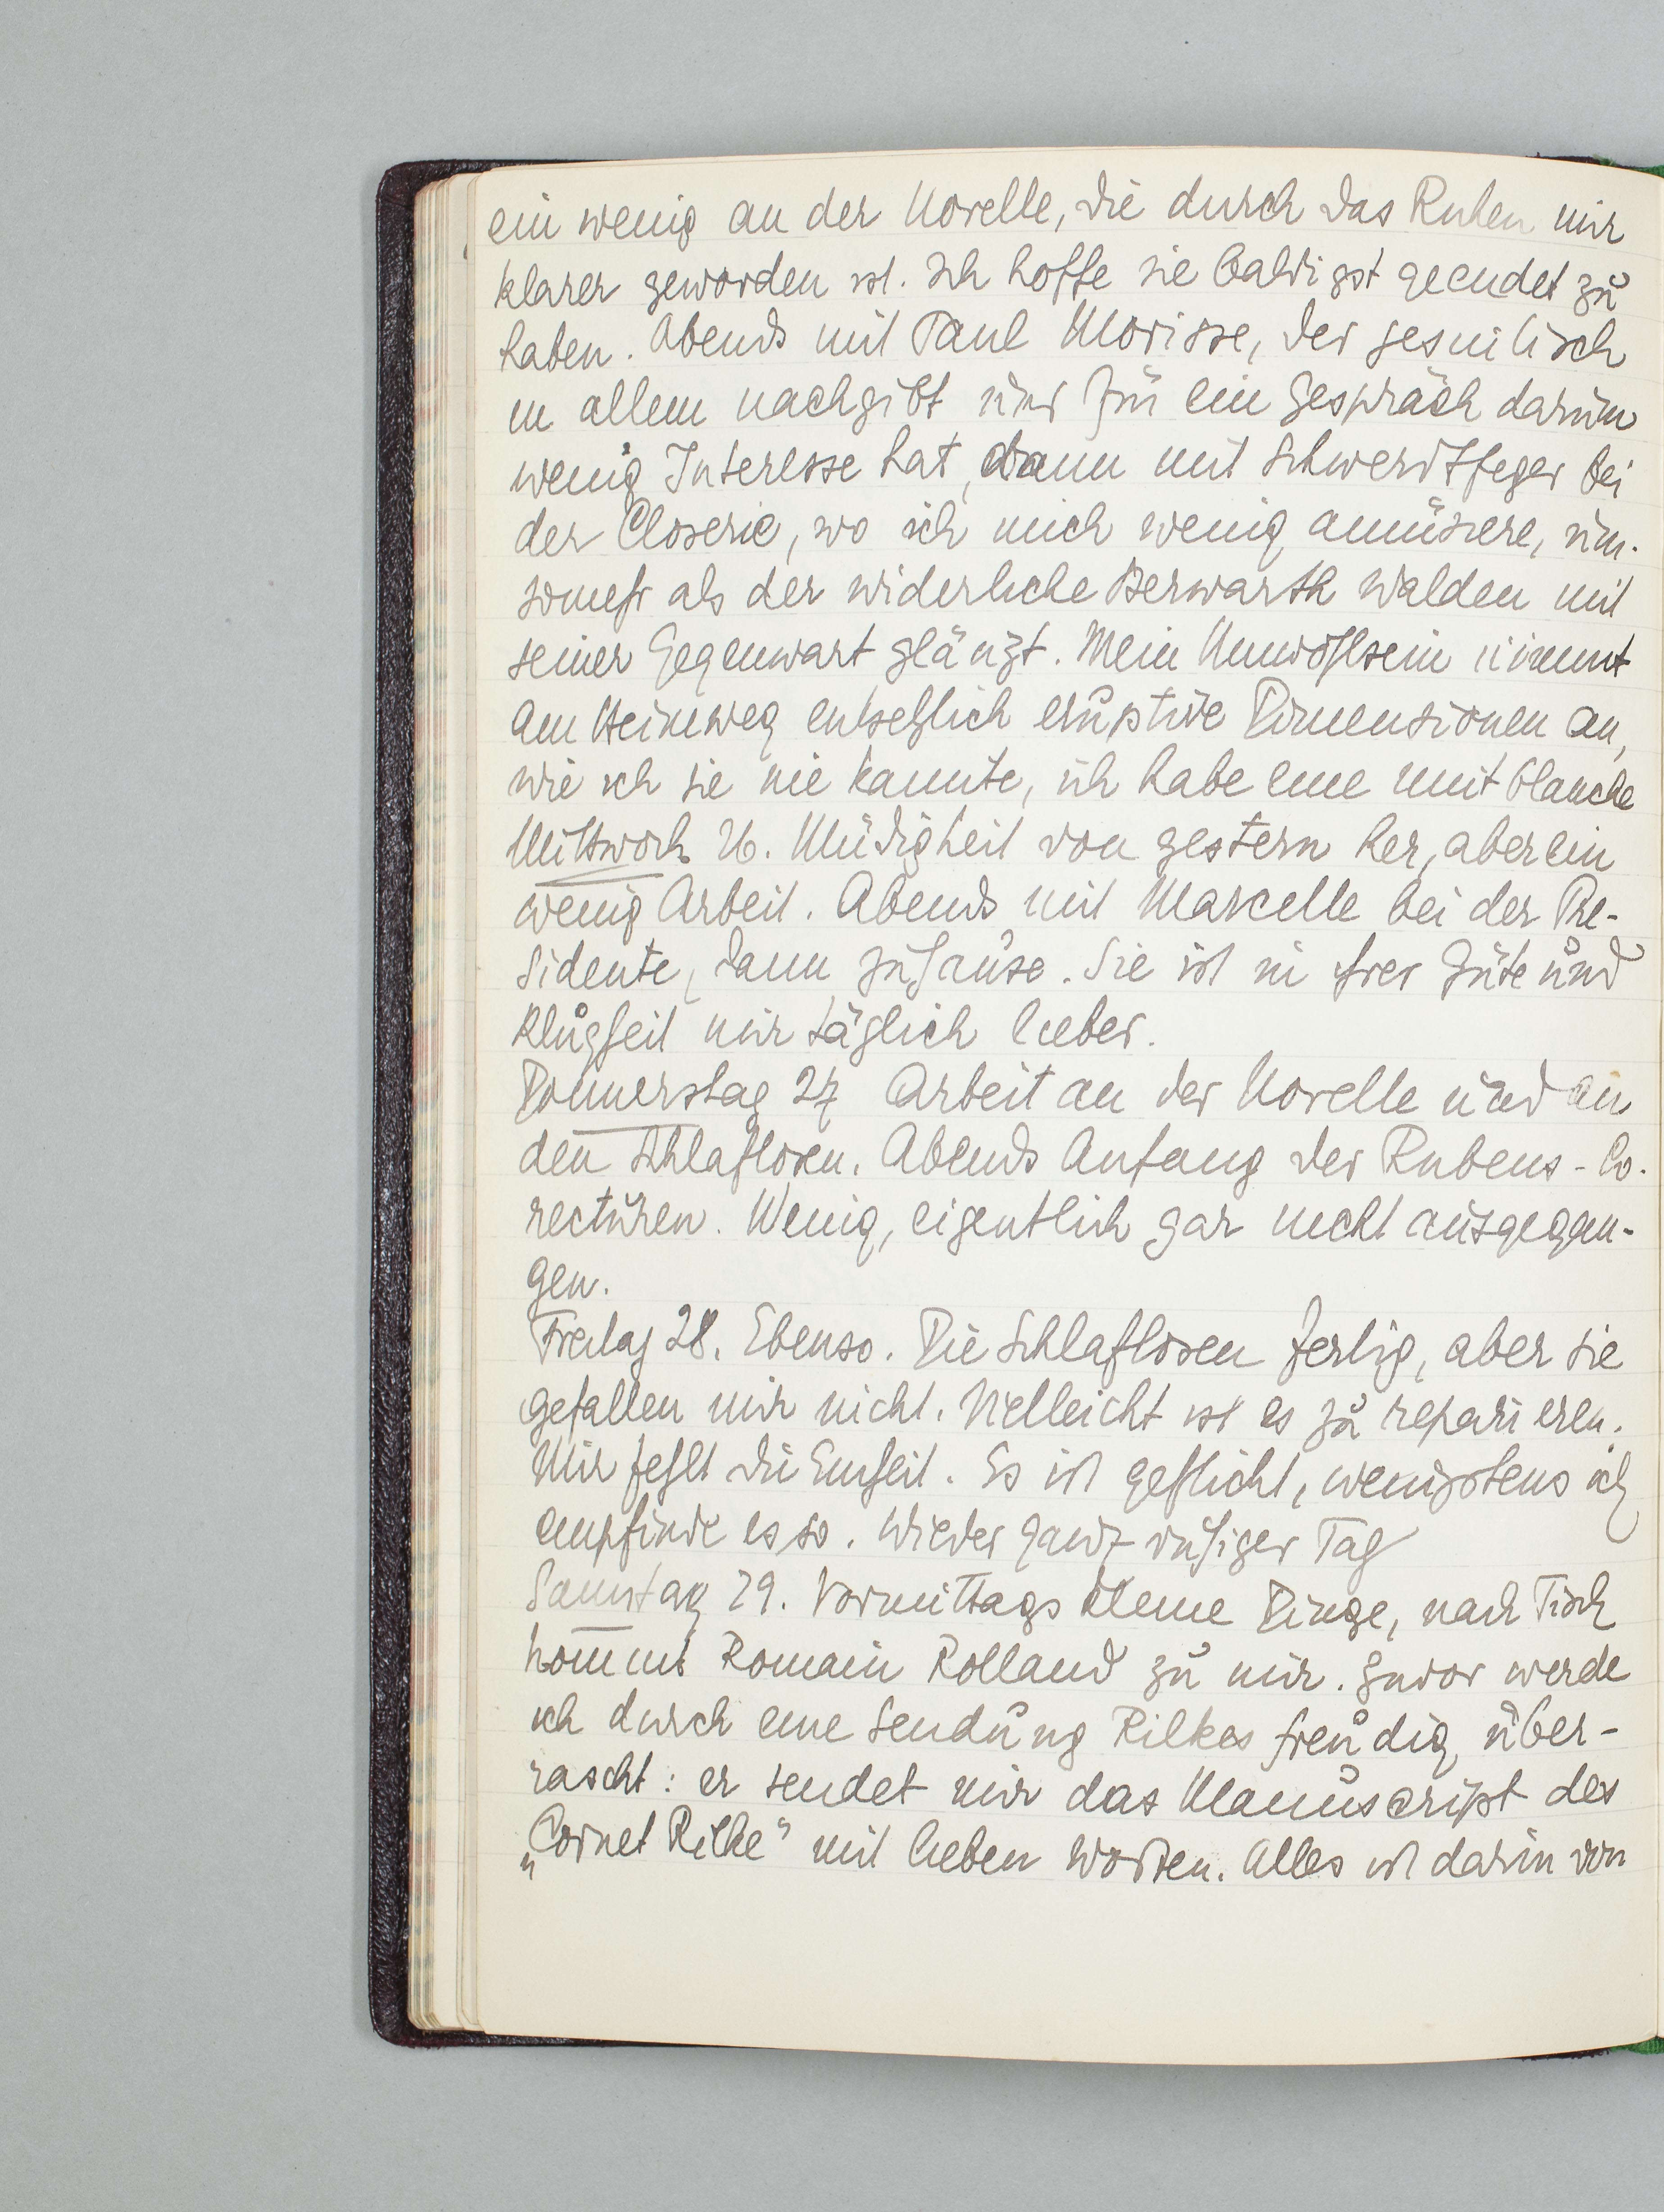 ein wenig an der Novelle, die durch das Ruhen mir
klarer geworden ist. Ich hoffe sie baldigst geendet zu
haben. Abends mit Paul Morisse, der jesuitisch
in allem nachgibt und für ein Gespräch darum
wenig Interesse hat, dann mit Schwerdtfeger bei
der Closerie, wo ich mich wenig amüsiere, um-
somehr als der widerliche Herwarth Walden mit
seiner Gegenwart glänzt. Mein Unwohlsein nimmt
am Heimweg entsetzlich eruptive Dimensionen an,
wie ich sie nie kannte, ich habe eine nuit blanche
Mittwoch 26. Müdigkeit von gestern her, aber ein
wenig Arbeit. Abends mit Marcelle bei der Pre-
sidente, dann zuhause. Sie ist in ihrer Güte und
Klugheit mir täglich lieber.
Donnerstag 27 Arbeit an der Novelle und an
den Schlaflosen. Abends Anfang der Rubens-Co-
recturen. Wenig, eigentlich gar nicht ausgegan-
gen.
Freitag 28. Ebenso. Die Schlaflosen fertig, aber sie
gefallen mir nicht. Vielleicht ist es zu reparieren.
Mir fehlt die Einheit. Es ist geflickt, wenigstens ich
empfinde es so. Wieder ganz ruhiger Tag
Samstag 29. Vormittags kleine Dinge, nach Tisch
kommt Romain Rolland zu mir. Zuvor werde
ich durch eine Sendung Rilkes freudig über-
rascht: er sendet mir das Manuscript des
„Cornet Rilke" mit lieben Worten. Alles ist darin von